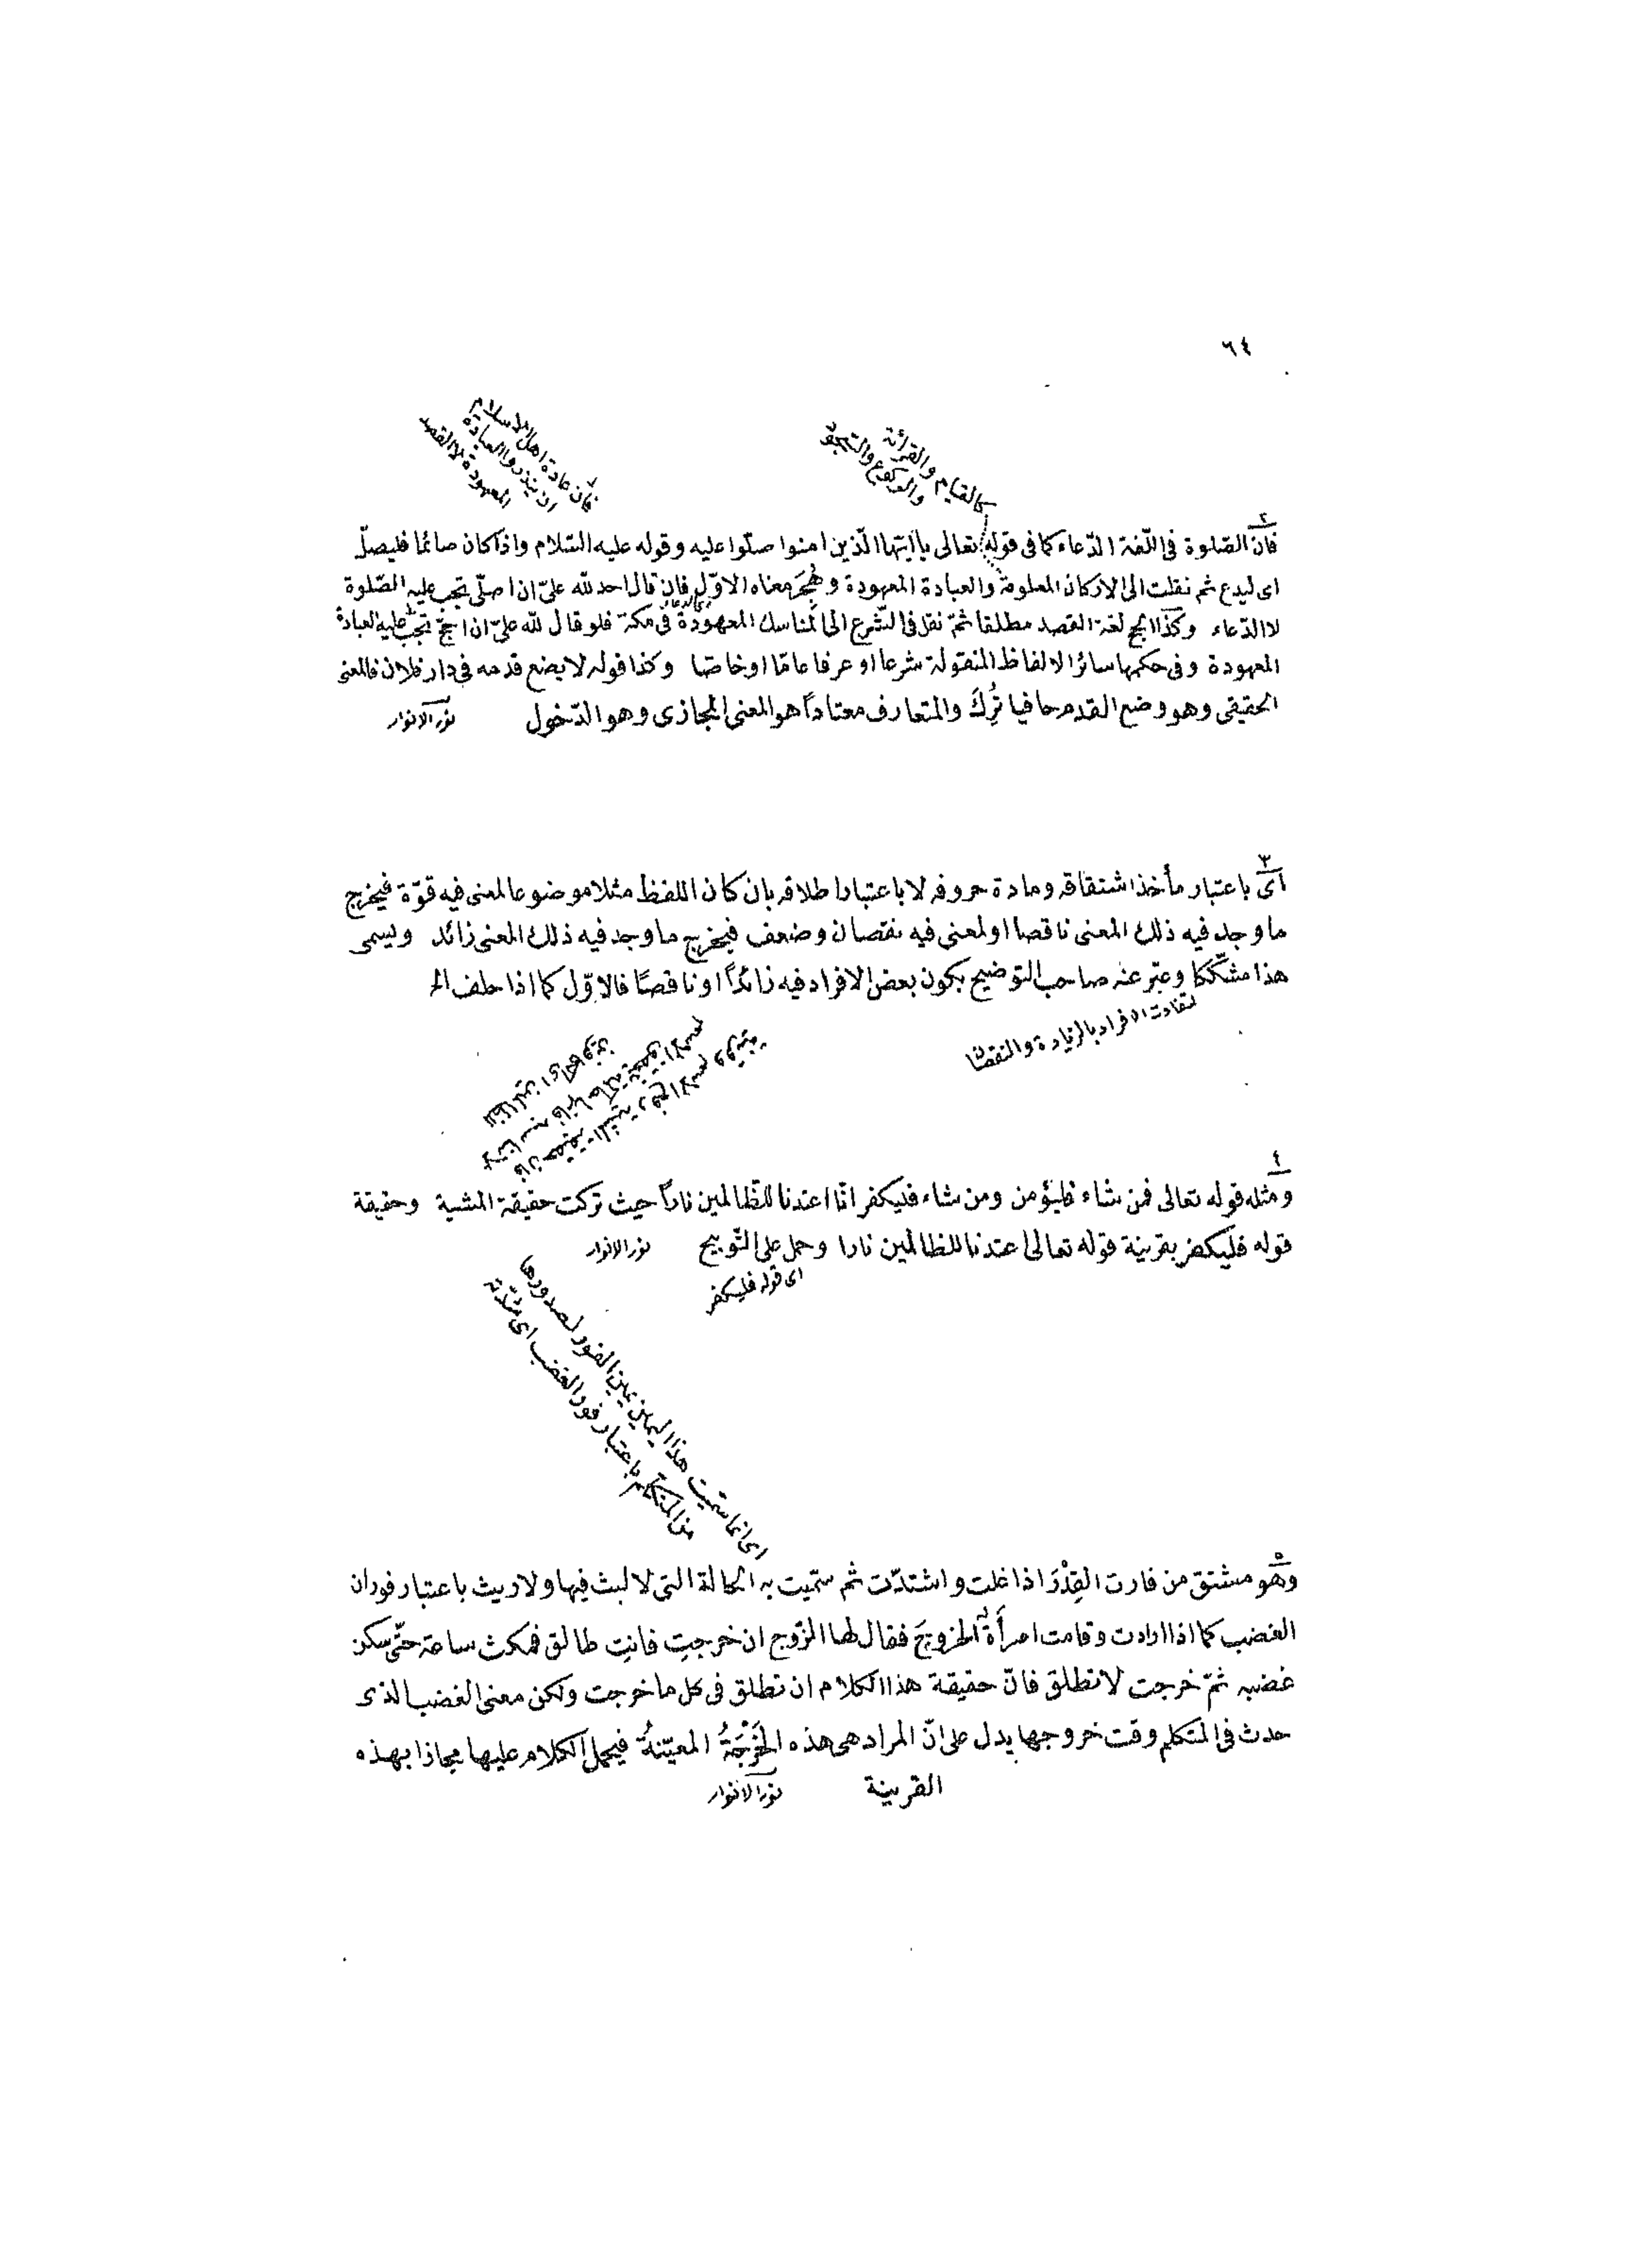 ٦٤
كالقيام والقرائة
والركوع والسجود
فأن عادة اهل الاسلام
ان ينذروا العبادة
المعهودة لا القصد
٢
فان الصلوة فى اللغة الدّعاء كما فى قوله تعالى ياايّها الّذين امنوا صلّوا عليه وقوله عليه السّلام واذا كان صائما فليصلّ
اى ليدع ثم نقلت الى الاركان المعلومة والعبادة المعهودة وهُجِرَ معناه الاوّل فان قال احد للّه علىّ ان اصلّى تجب عليه الصّلوة
لا الدّعاء وكذا الحج لغة القصد مطلقا ثمّ نقل فى الشّرع الى المناسك المعهودة فى مكة فلو قال للّه علىّ ان احجّ تجب عليه العبادة
المعهودة وفى حكمها سائر الالفاظ المنقولة شرعا او عرفا عامّا او خاصّا وكذا قوله لا يضع قدمه فى دار فلان فالمعنى
الحقيقى وهو وضع القدم حافيا تُرِكَ والمتعارف معتاداً هو المعنى المجازى وهو الدّخول نور الانوار
٣
اى باعتبار مأخذ اشتقاقه ومادة حروفه لا باعتبار اطلاقه بان كان اللفظ مثلا موضوعا لمعنى فيه قوّة فيخرج
ما وجد فيه ذلك المعنى ناقصا او لمعنى فيه نقصان وضعف فيخرج ما وجد فيه ذلك المعنى زائد ويسمى
هذا مشكّكا وعبّر عنه صاحب التوضيح بكون بعض الافراد فيه زائدًا او ناقصًا فالاوّل كما اذا حلف الخ
لتفاوت الافراد بالزيادة والنقصان
٤
ومثله قوله تعالى فمن شاء فليؤمن ومن شاء فليكفر انّا اعتدنا للظّالمين ناراً حيث تركت حقيقة المشية وحقيقة
قوله فليكفر بقرينة قوله تعالى اعتدنا للظالمين نارا وحمل على التّوبيخ نور الانوار
اى قوله فليكفر
اى انما سمّيت هذا اليمين يمين الفور لصدورها
من المتكلّم باعتبار فور الغضب اى شدّته
٥
وهو مشتق من فارت القِدْرَ اذا غلت واشتدّت ثم سمّيت به الحالة التى لا لبث فيها ولا ريث باعتبار فوران
الغضب كما اذا ارادت وقامت امرأة الخروجَ فقال لها الزّوج ان خرجتِ فانتِ طالق فمكث ساعة حتّى سكن
غضبه ثمّ خرجت لا تطلق فانّ حقيقة هذا الكلام ان تطلق فى كل ما خرجت ولكن معنى الغضب الذى
حدث فى المتكلم وقت خروجها يدل على انّ المراد هى هذه الخَرْجَةُ المعيّنةُ فيحمل الكلام عليها مجازا بهذه
القرينة نور الانوار